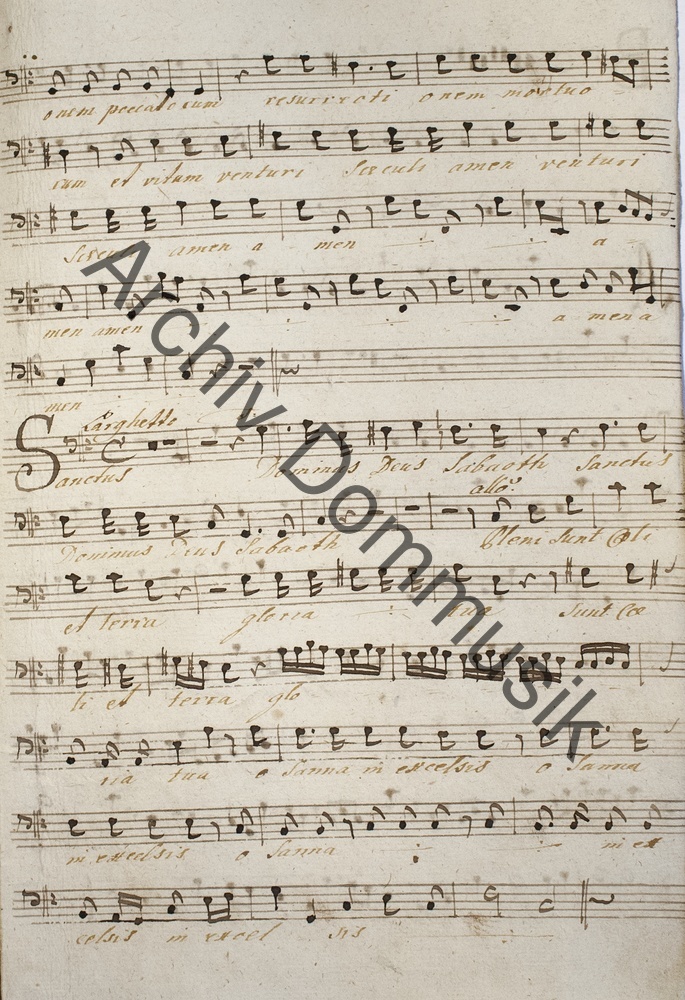 onem peccatorum resurrecti onem mortuo
rum et vitam venturi Seculi amen venturi
Seculi amen a men a
men amen a men a
men
Larghetto
Sanctus Dominus Deus Sabaoth Sanctus
allo.
Dominus Deus Sabaoth Pleni Sunt Coeli
et terra gloria tua Sunt Coe
li et terra glo
ria tua o Sanna in excelsis o Sanna
in excelsis o Sanna in ex
celsis in excel sis
Archiv Dommusik